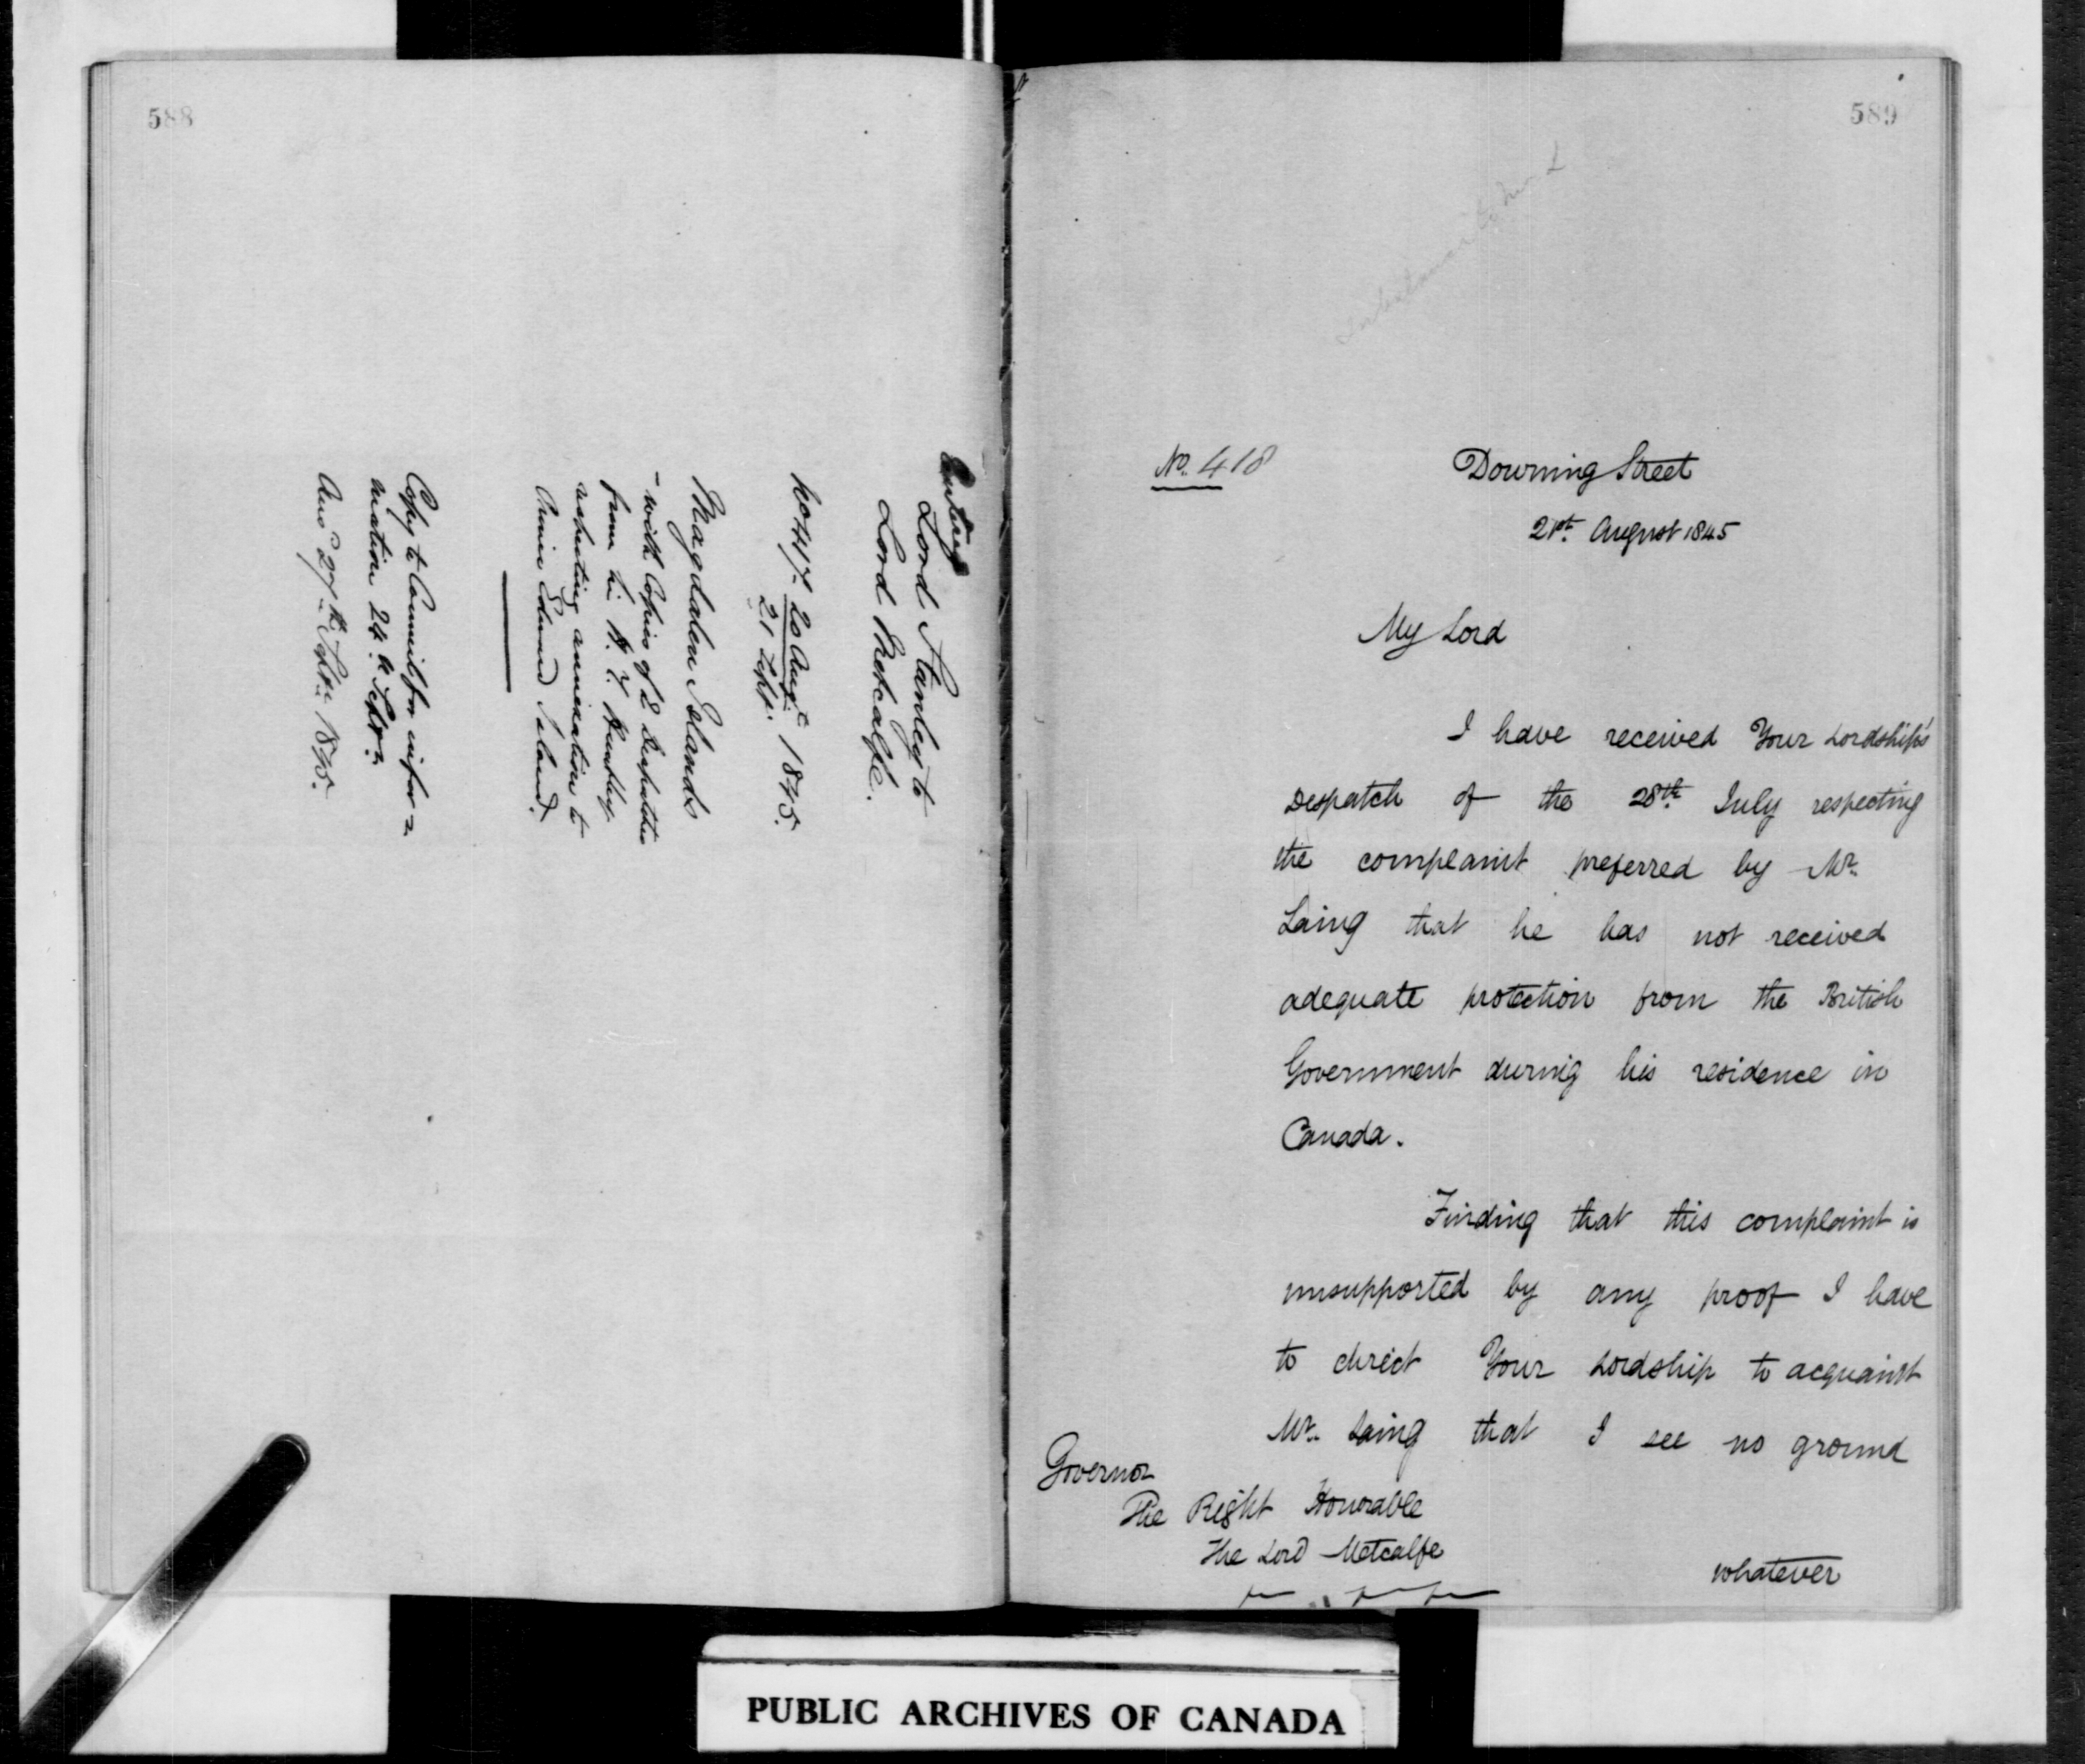 588
Lord Stanley to
Lord Metcalfe.
No 417. 20 Augt 1845.
21 Sept.
Magdalen Islands
- with Copies of 2 Despatches
from
respecting annexation to
Prince Edward Island.
Copy to Council for infor=
mation 24th Septr
Ansd 27th Septr 1845.
589
No. 418
Downing Street
21st. August 1845
My Lord
I have received Your Lordship's
Despatch of the 28th July respecting
the complaint preferred by Mr.
Laing that he has not received
adequate protection from the British
Government during his residence in
Canada.
Finding that this complaint is
unsupported by any proof I have
to direct Your Lordship to acquaint
Mr. Laing that I see no ground
Governor
The Right Honorable
The Lord Metcalfe
whatever
PUBLIC ARCHIVES OF CANADA